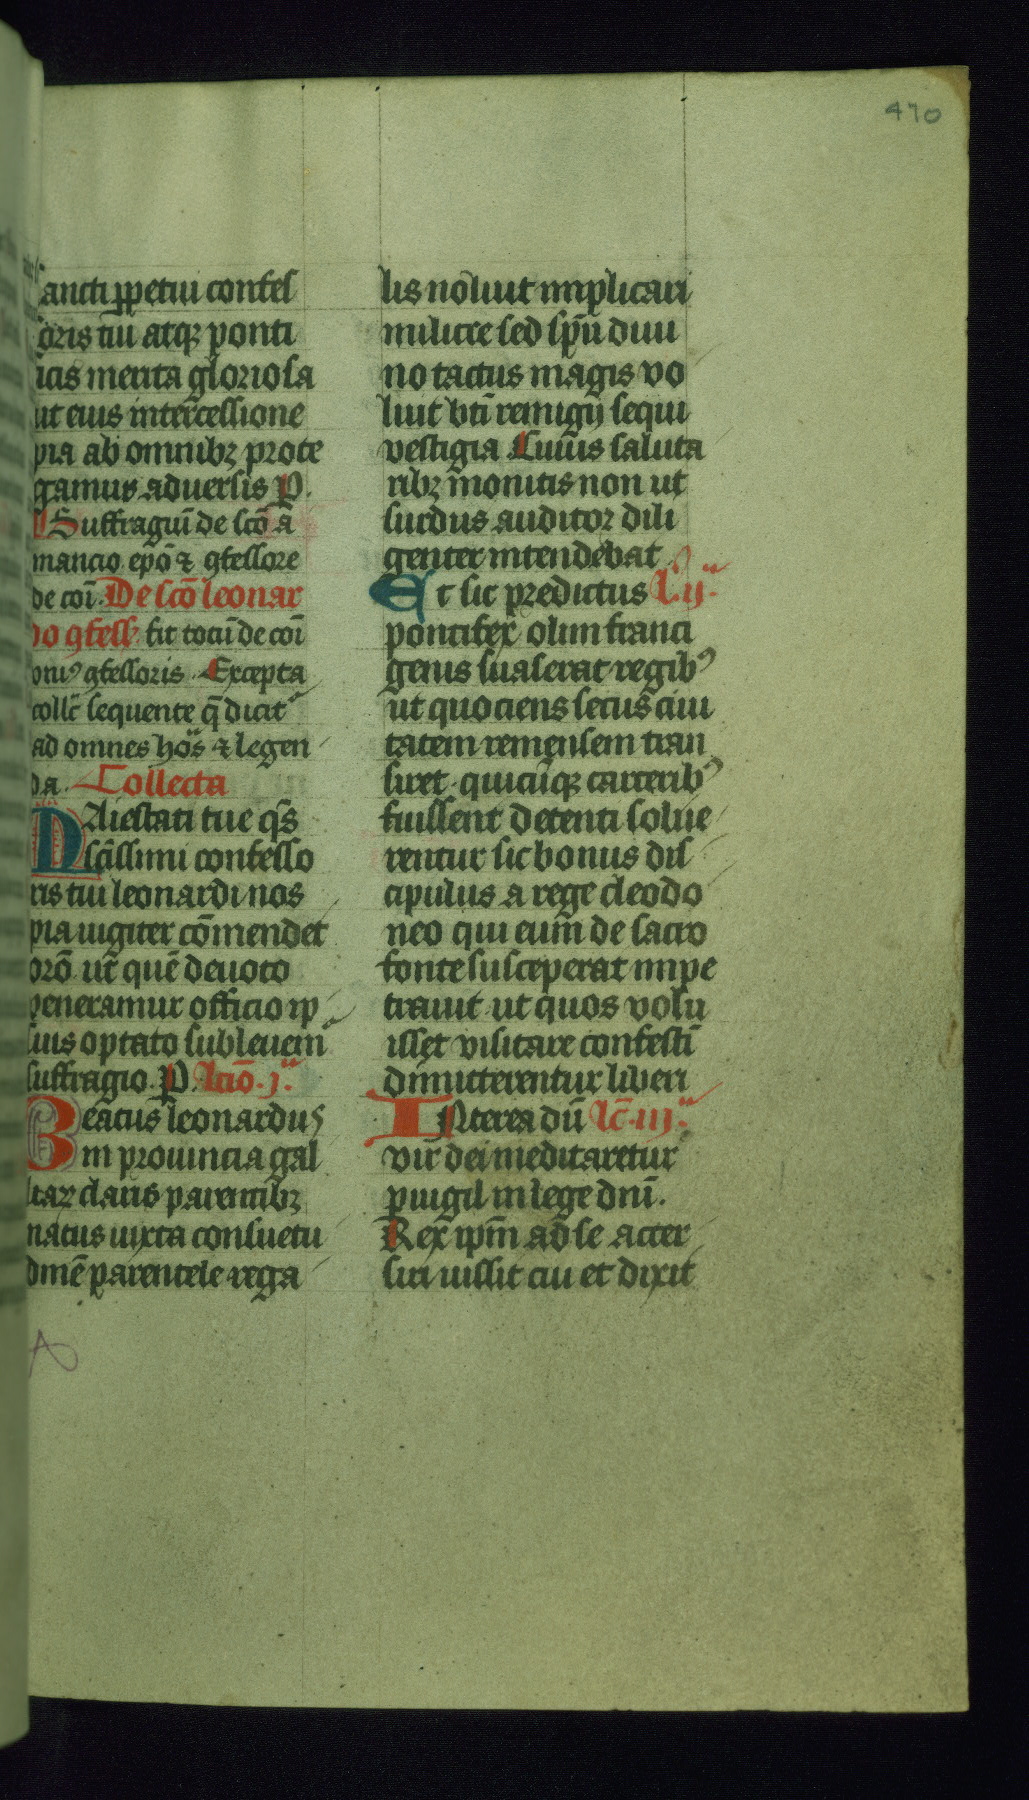 470
sancti ꝑpetui confes
soris tui atqꝫ ponti
icis merita gloriosa
ut eius interc̄essione
pia ab omnibꝫ prote
gamur aduersis P.
Suffragiū de scō a
mancio epō ⁊ ꝯfessore
de coī. De scō leonar
do ꝯfess. fit totū de coī
oniꝰ ꝯfessoris. Excepta
coll̄c sequente q̄ dicit᷑
ad omnes hōs ⁊ legen
da. Collecta
Maiestati tue q̄s
scissimi confesso
ris tui leonardi nos
pia iugiter cōmendet
orō ut quē deuoto
veneramur officio ip
suis optato subleuem᷑
suffragio. P. lctō. j.ᵃ
Beatus leonardus
in prouincia gal
liaꝝ claris parentibꝫ
natus iuxta consuetu
dinē parentele rega
lis noluit implicari
milicie sed sp̄u diui
no tactus magis vo
luit bt̄i remigij sequi
vestigia Cuiūs saluta
ribꝫ monitis non ut
surdus auditor dili
genter intendebat
Et sic predictus l. ij.ᵃ
pontifex olim franci
genis suaserat regibꝰ
ut quociens secus ciui
tatem remensem tran
siret quicūqꝫ carceribꝰ
fuissent detenti solue
rentur sic bonus dis
cipulus a rege cleodo
neo qui eum de sacro
fonte susceperat impe
trauit ut quos volu
isset visitare confestī
dimitterentur liberi
Interea dū lc̄. iij.ᵃ
vir dei meditaretur
ꝑuigil in lege dnī.
Rex ip̄m ad se acter
siri iussit cui et dixit